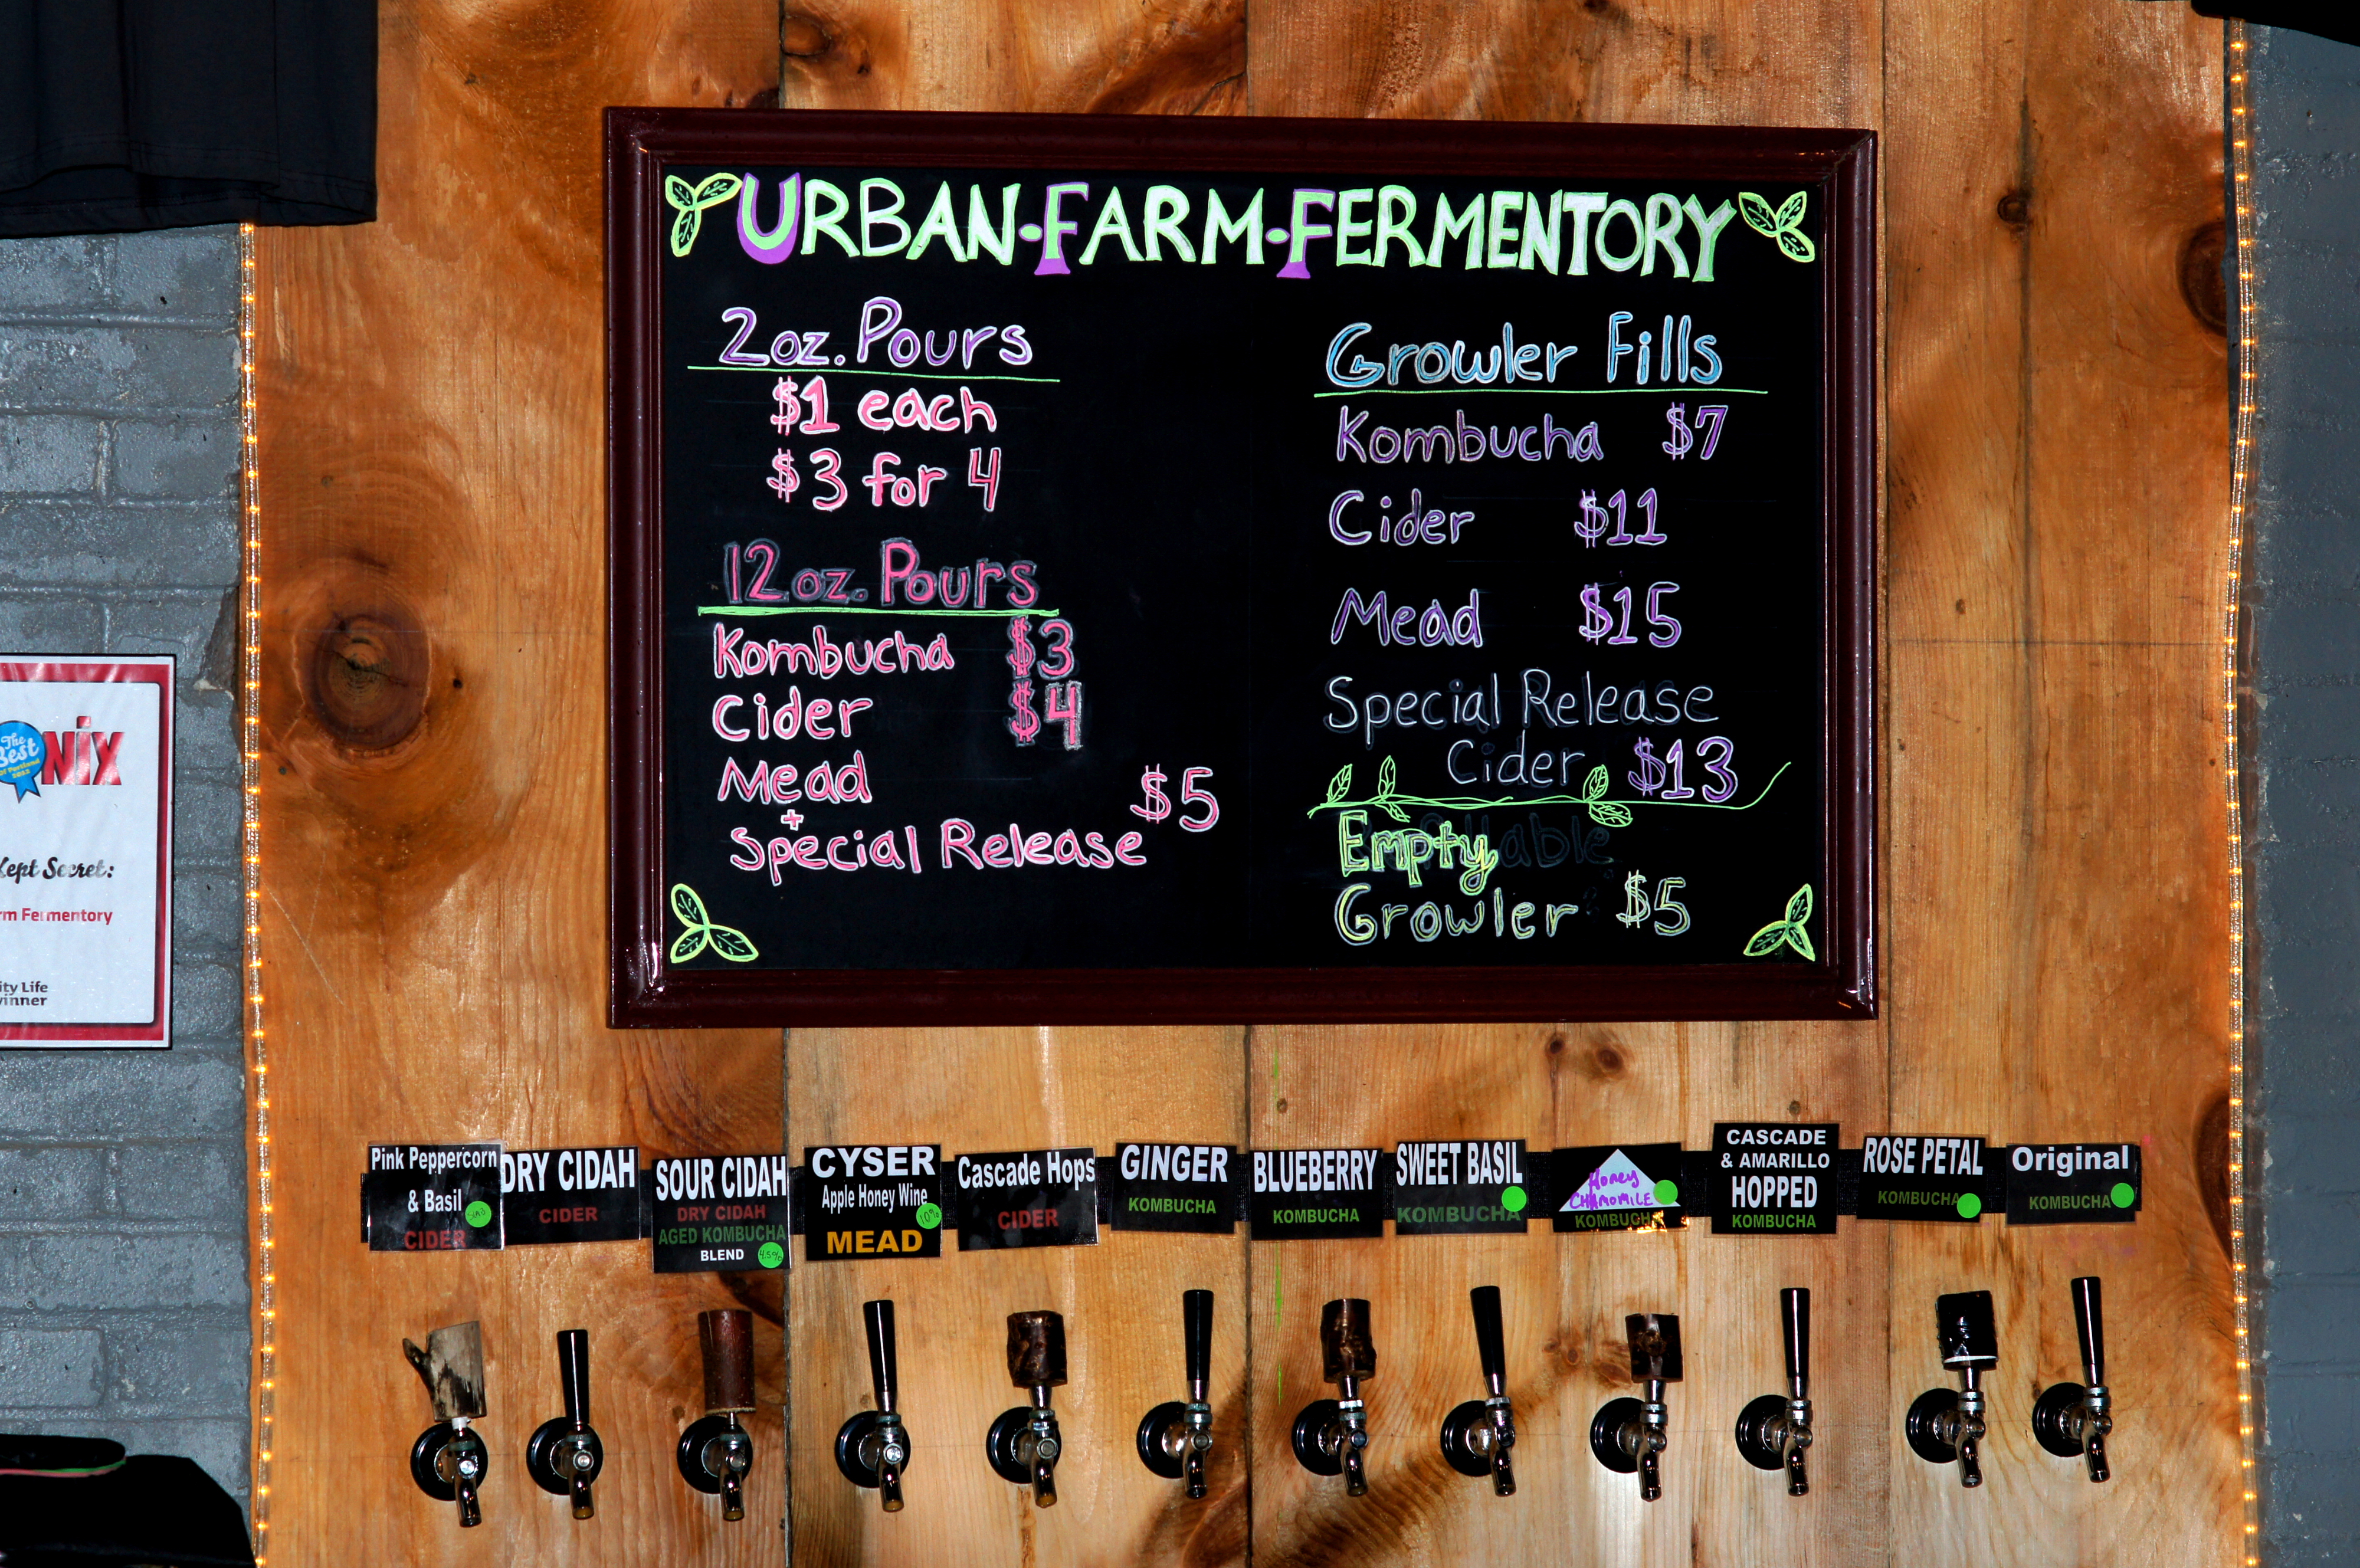 URBAN·FARM·FERMENTORY
2oz. Pours
$1 each
$3 for 4
12oz. Pours
Kombucha $3
Cider $4
Mead
+
Special Release $5
Growler Fills
Kombucha $7
Cider $11
Mead $15
Special Release
Cider $13
Empty
Growler $5
The
Best
Of Portland
NIX
Kept Secret:
rm Fermentory
ity Life
winner
Pink Peppercorn
& Basil
CIDER
DRY CIDAH
CIDER
SOUR CIDAH
DRY CIDAH
AGED KOMBUCHA
BLEND
4.5%
CYSER
Apple Honey Wine
10%
MEAD
Cascade Hops
CIDER
GINGER
KOMBUCHA
BLUEBERRY
KOMBUCHA
SWEET BASIL
KOMBUCHA
Honey
CHAMOMILE
KOMBUCHA
CASCADE
& AMARILLO
HOPPED
KOMBUCHA
ROSE PETAL
KOMBUCHA
Original
KOMBUCHA